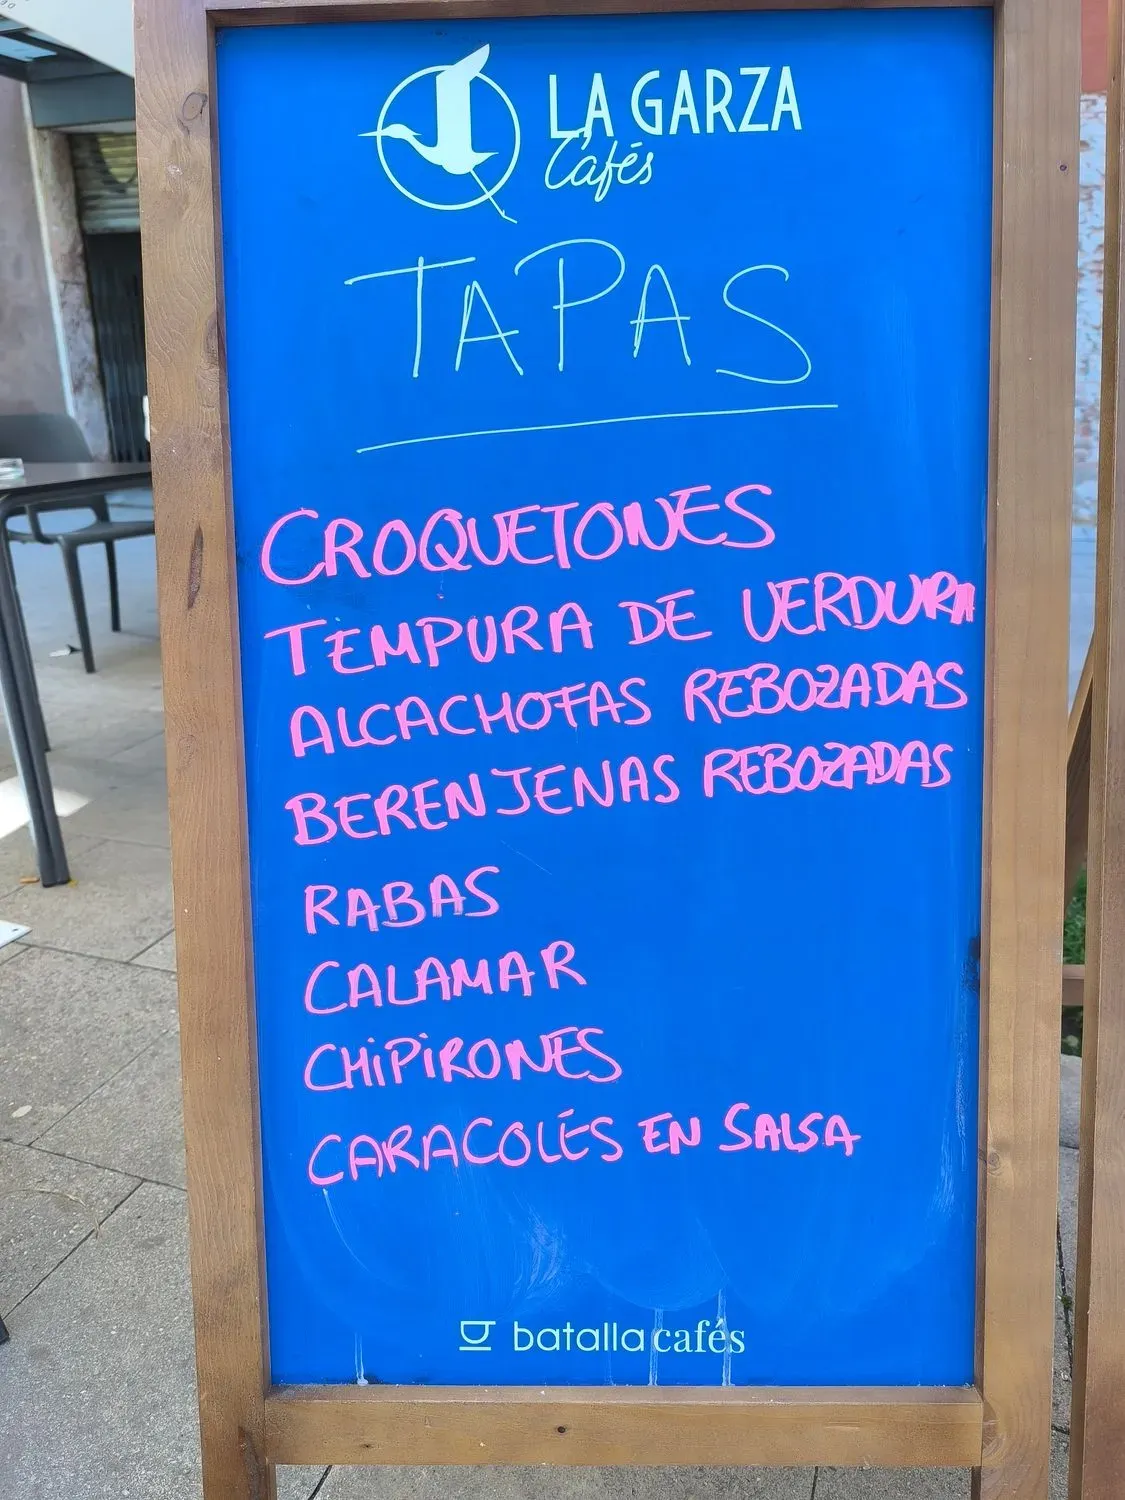 LA GARZA
Cafés
TAPAS
CROQUETONES
TEMPURA DE VERDURA
ALCACHOFAS REBOZADAS
BERENJENAS REBOZADAS
RABAS
CALAMAR
CHiPiRONES
CARACOLÉS EN SALSA
batalla cafés